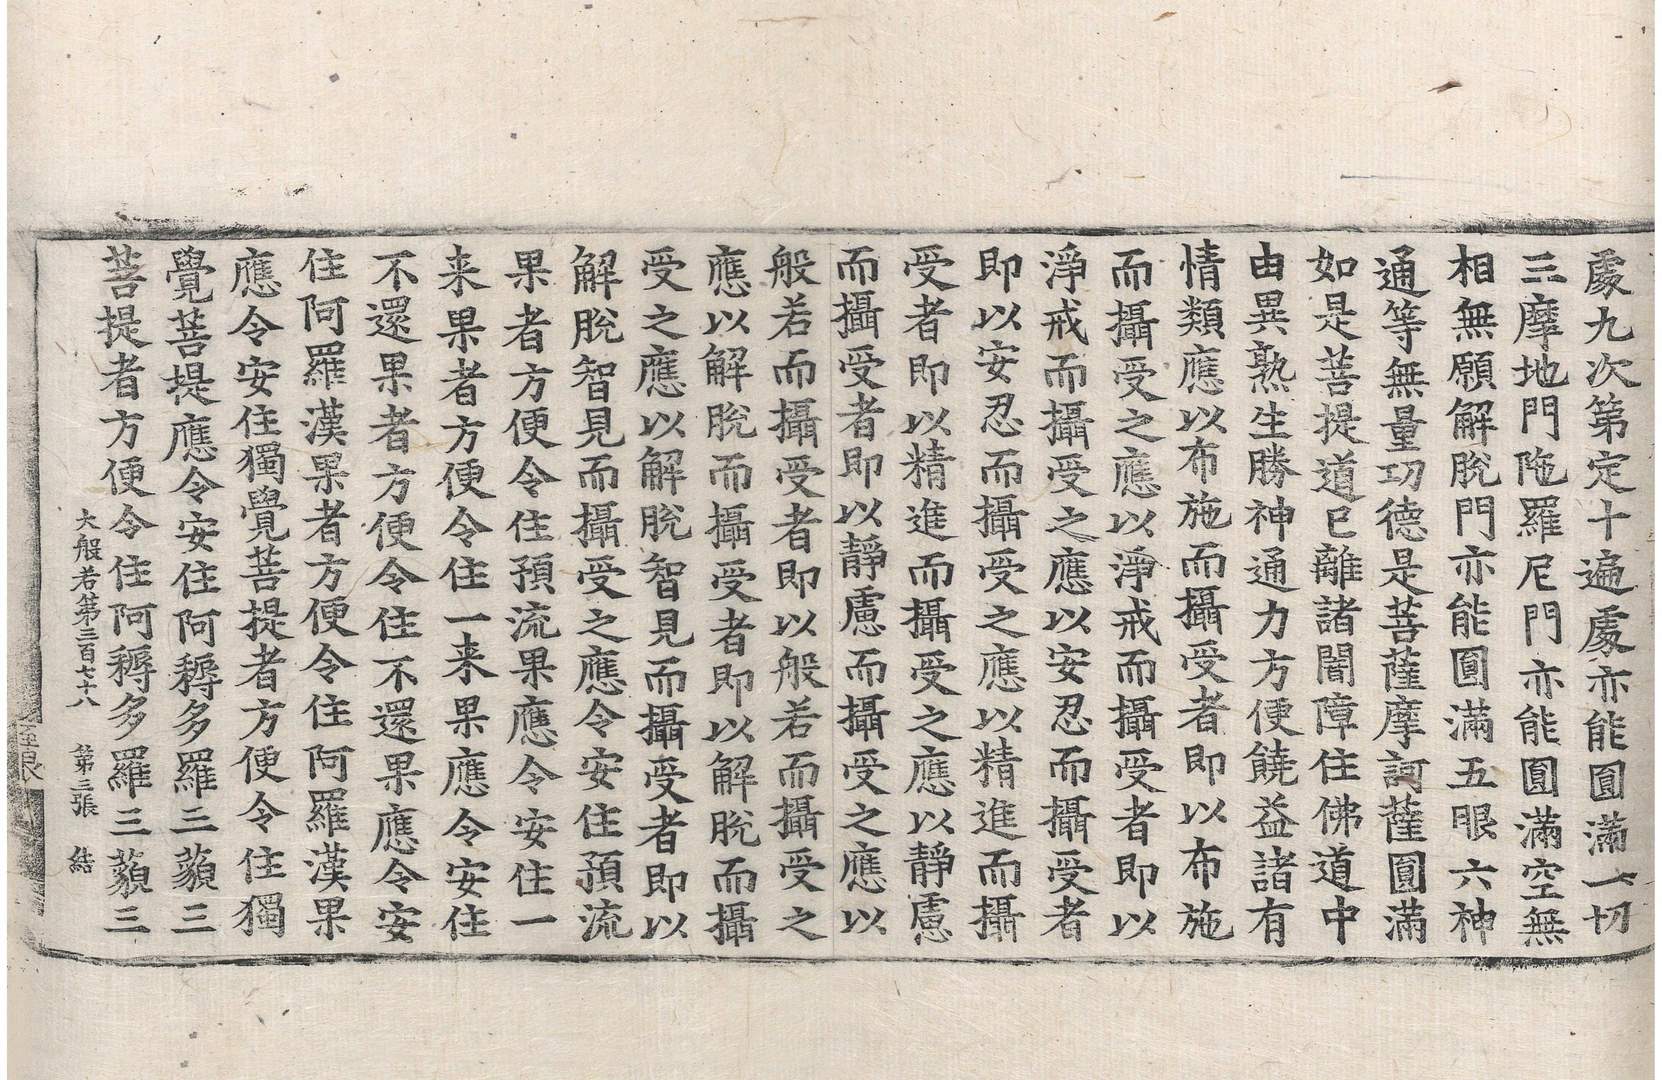 處九次第定十遍處亦能圓滿一切
三摩地門陁羅尼門亦能圓滿空無
相無願解脫門亦能圓滿五眼六神
通等無量功德是菩薩摩訶薩圓滿
如是菩提道已離諸闇障住佛道中
由異熟生勝神通力方便饒益諸有
情類應以布施而攝受者即以布施
而攝受之應以淨戒而攝受者即以
淨戒而攝受之應以安忍而攝受者
即以安忍而攝受之應以精進而攝
受者即以精進而攝受之應以靜慮
而攝受者即以靜慮而攝受之應以
般若而攝受者即以般若而攝受之
應以解脫而攝受者即以解脫而攝
受之應以解脫智見而攝受者即以
解脫智見而攝受之應令安住預流
果者方便令住預流果應令安住一
来果者方便令住一来果應令安住
不還果者方便令住不還果應令安
住阿羅漢果者方便令住阿羅漢果
應令安住獨覺菩提者方便令住獨
覺菩提應令安住阿耨多羅三藐三
菩提者方便令住阿耨多羅三藐三
大般若第三百七十八 第三張 結